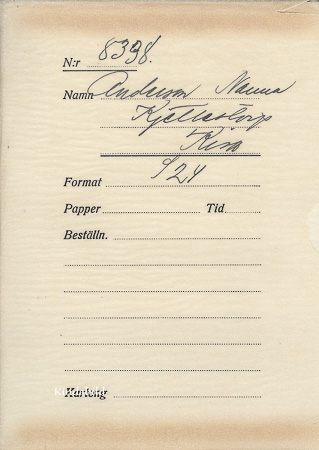 N:r 8398.
Namn Anderson Nanna
Kisa
Format 1/24
Papper Tid
Beställn.
Kartong